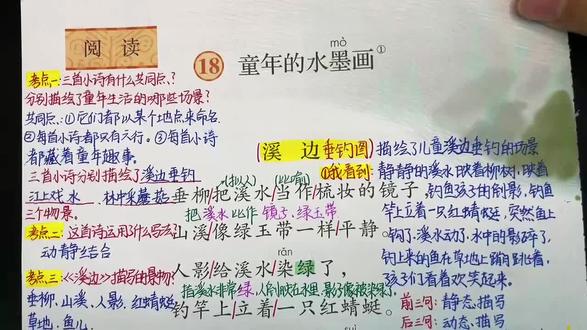 阅读
18 童年的水墨画①
mò
考点一:三首小诗有什么共同点?
分别描绘了童年生活的哪些场景?
共同点:①它们都以某个地点来命名.
②每首小诗都只有六行。③每首小诗
都藏着童年趣事。
三首小诗分别描绘了溪边垂钓
江上戏水、林中采蘑菇
三个场景。
考点二:这首诗运用了什么写法?
动静结合
考点三:《溪边》描写的景物?
垂柳、山溪、人影、红蜻蜓
草地、鱼儿
溪边 垂钓图
描绘了儿童溪边垂钓的场景
①我看到:静静的溪水映着柳树,映着
钓鱼孩子的倒影,钓鱼
竿上立着一只红蜻蜓,突然鱼上
钩了,溪水动了,水中的影碎了,
钓上来的鱼在草地上蹦跳着,
孩子们看着欢笑起来。
前三句:静态描写
后三句:动态描写
(拟人) (比喻)
垂柳/把溪水/当作/梳妆的镜子,
把溪水比作镜子、绿玉带
山溪/像绿玉带一样/平静。
rǎn
人影/给溪水/染绿了,
指溪水非常绿,人倒映在水里,影子像被染绿了。
钓竿上/立着/一只红蜻蜓。